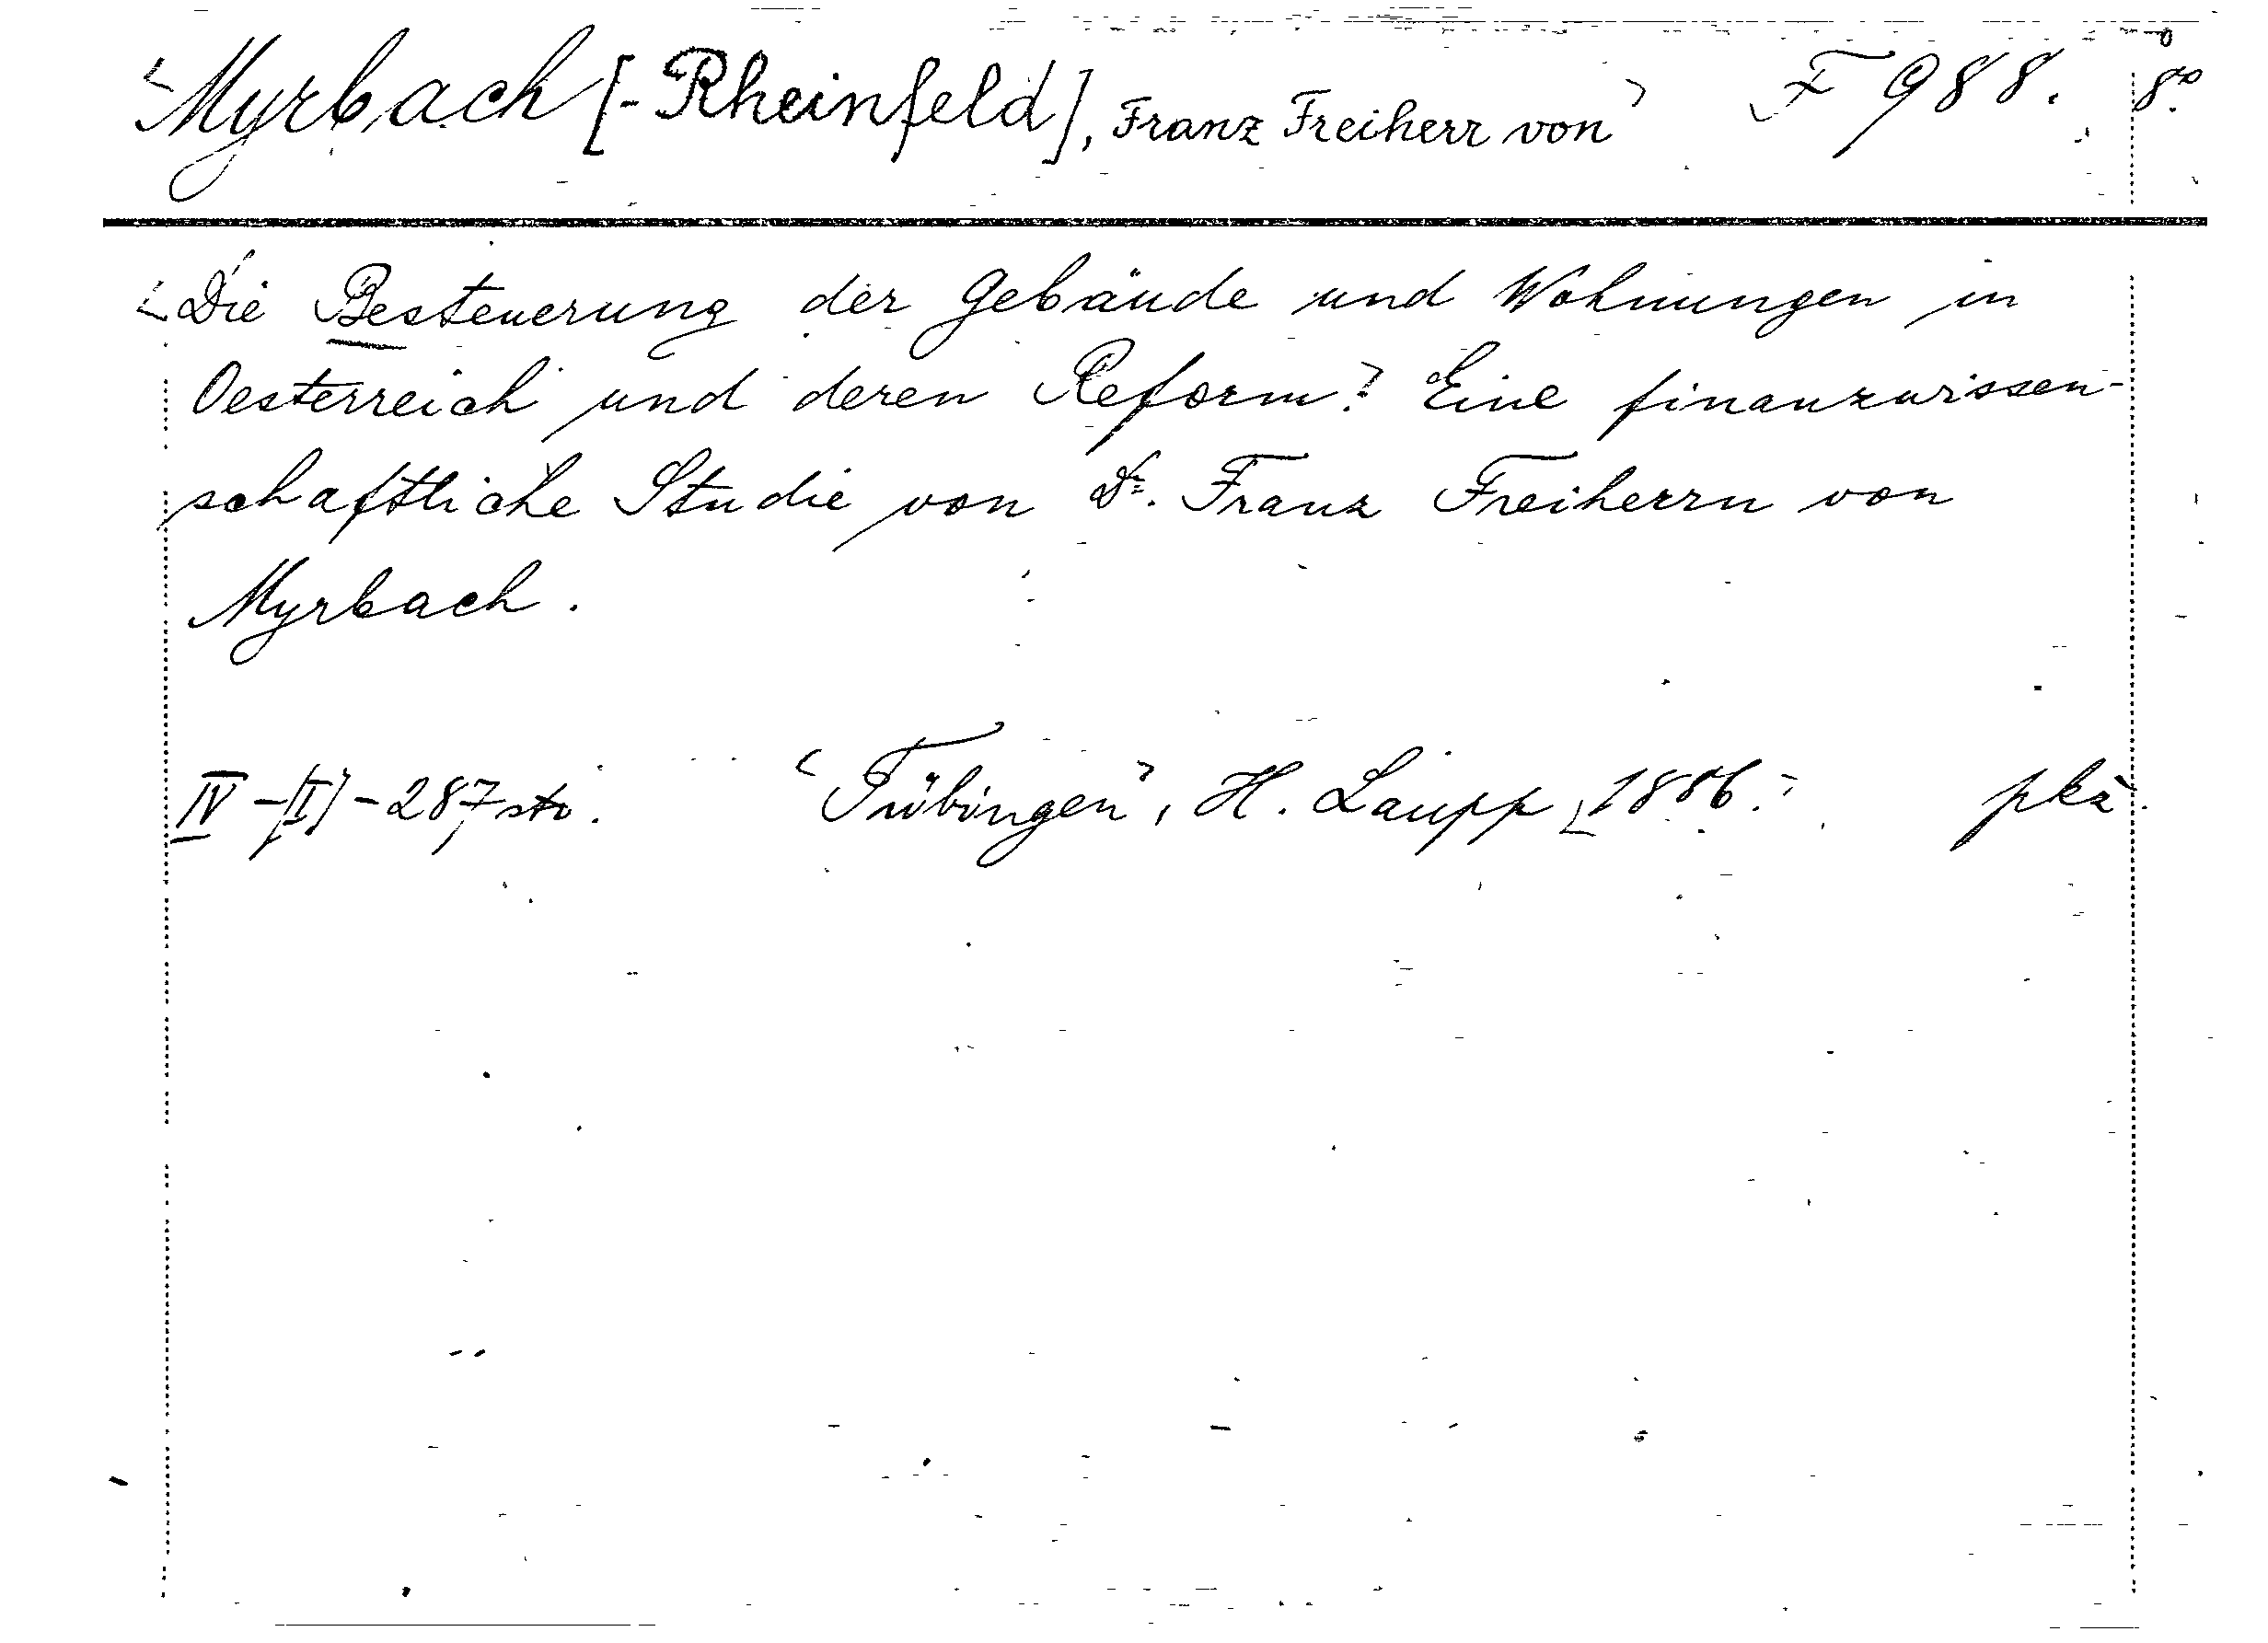 Myrbach [-Rheinfeld], Franz Freiherr von F 988. 8°.
Die Besteuerung der Gebäude und Wohnungen in
Oesterreich und deren Reform. Eine finanzwissen-
schaftliche Studie von Dr. Franz Freiherrn von
Myrbach.
IV-[I]-287 str. Tübingen, H. Laupp, 1886. pkž.